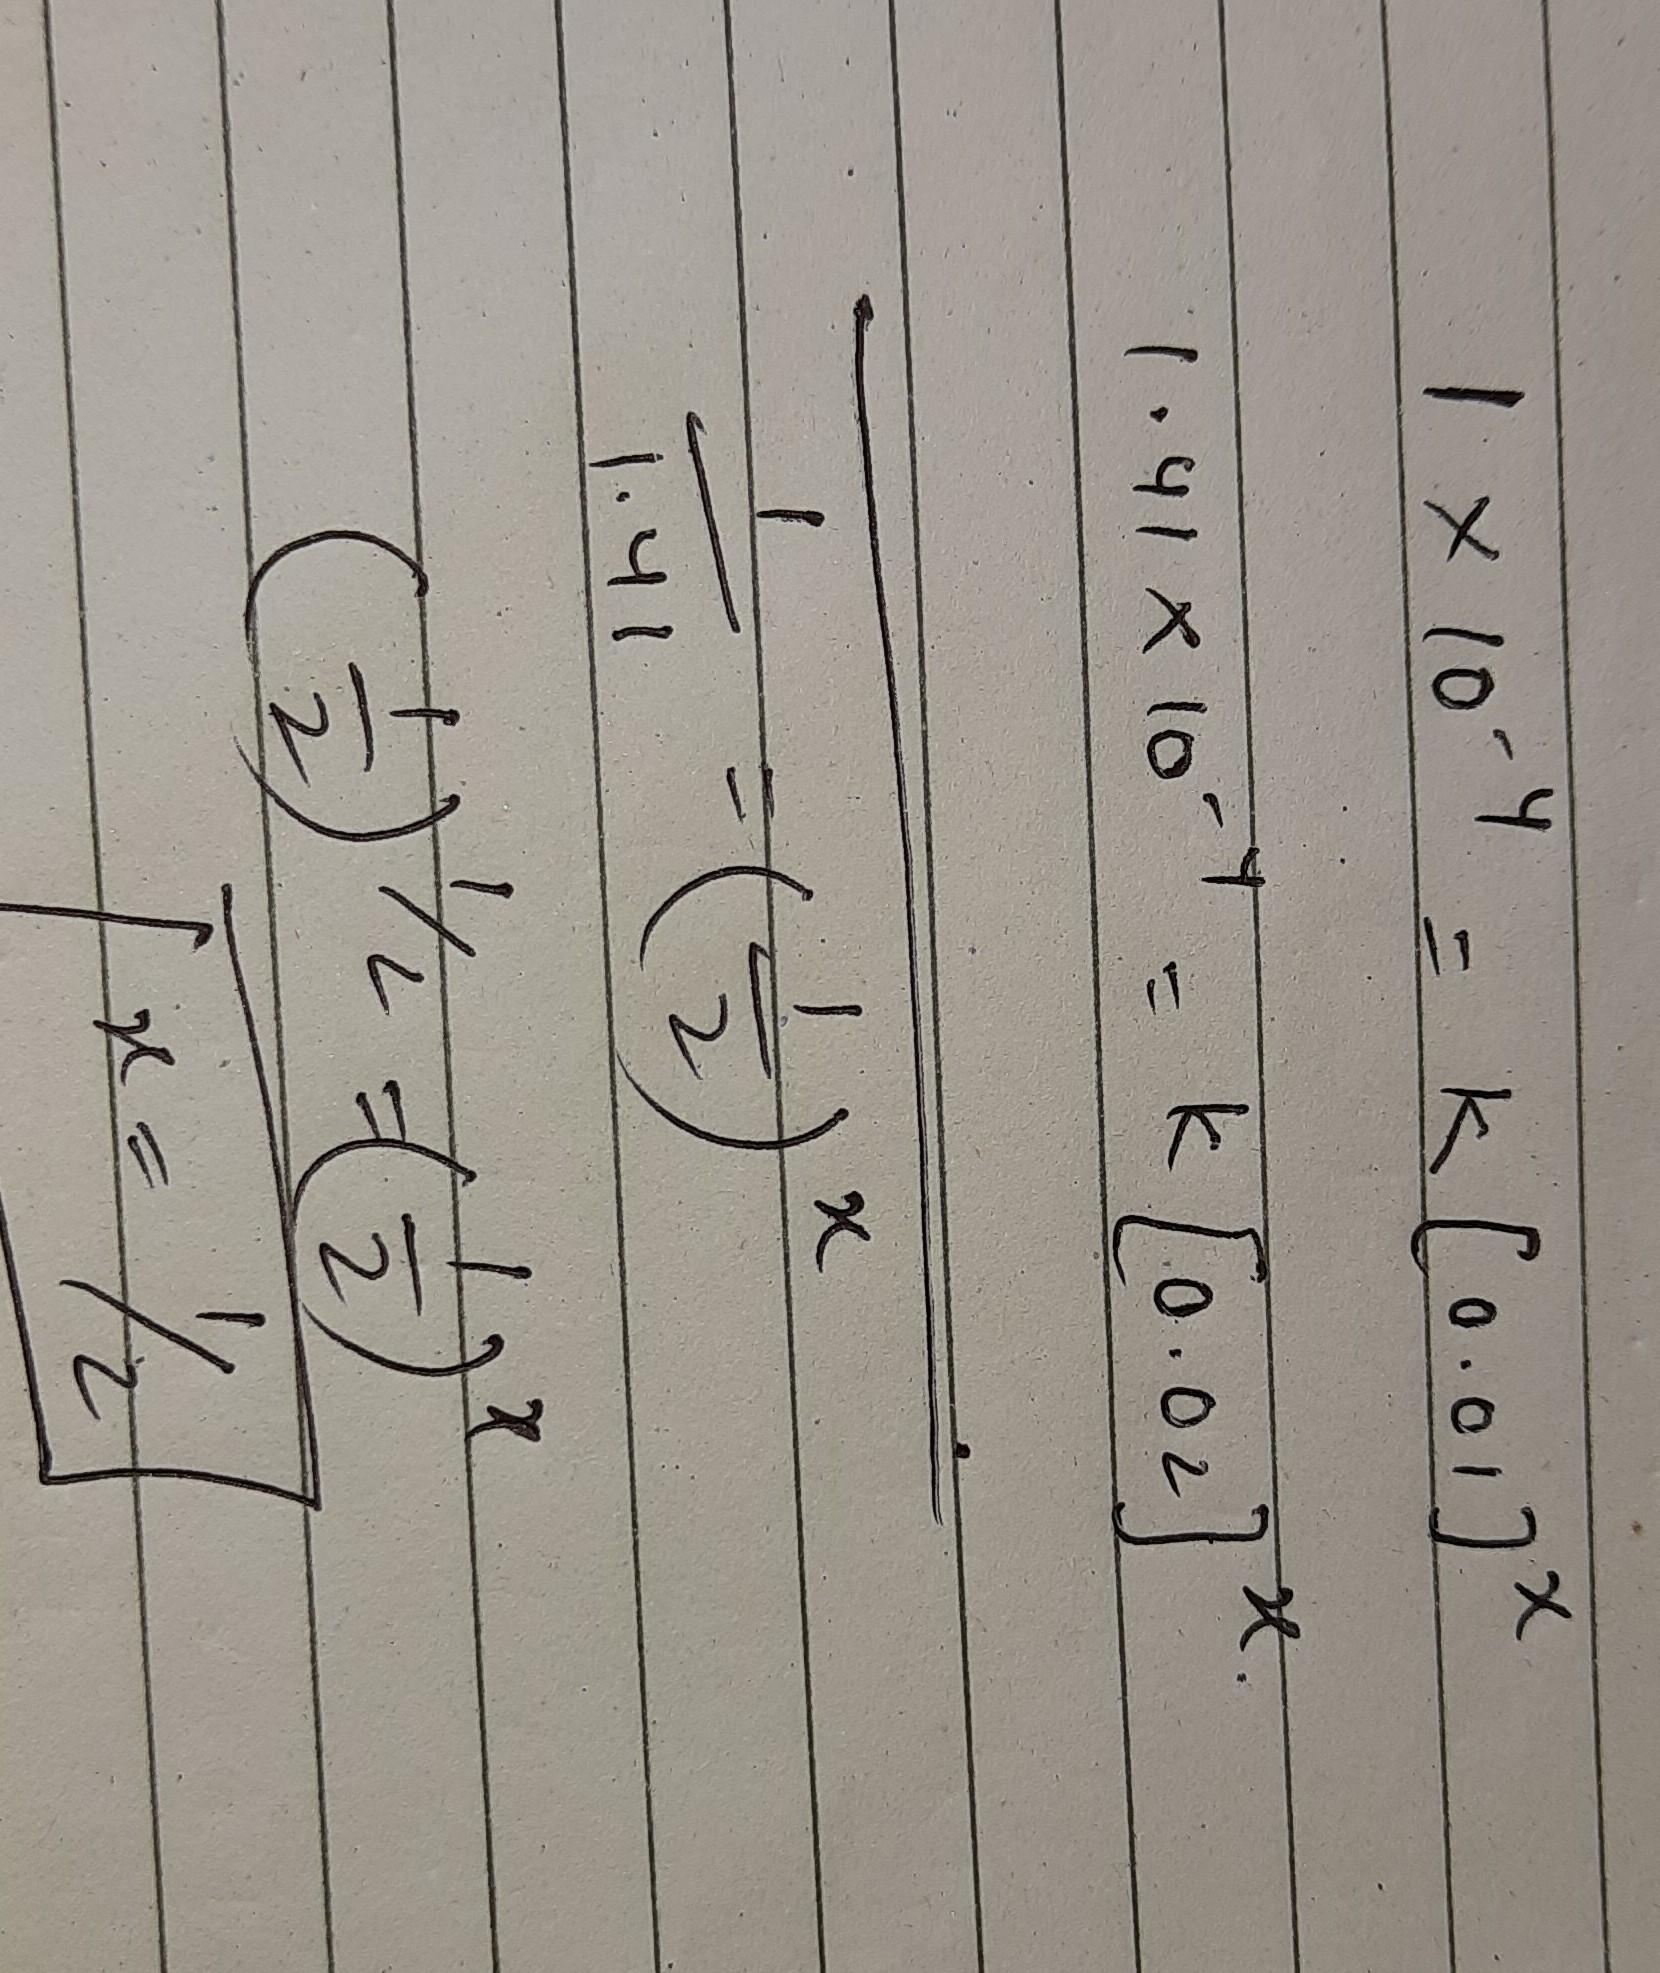 1 × 10⁻⁴ = k [0.01]ˣ
1.41 × 10⁻⁴ = k [0.02]ˣ.
1/1.41 = (1/2)ˣ
(1/2)^1/2 = (1/2)ˣ
x = 1/2